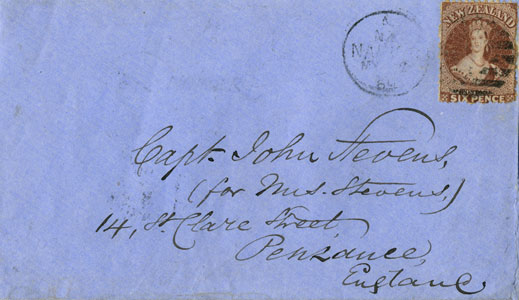 NEW ZEALAND
SIX PENCE
Capt. John Stevens,
(for Mrs. Stevens,)
14, St. Clare Street,
Penzance,
England.